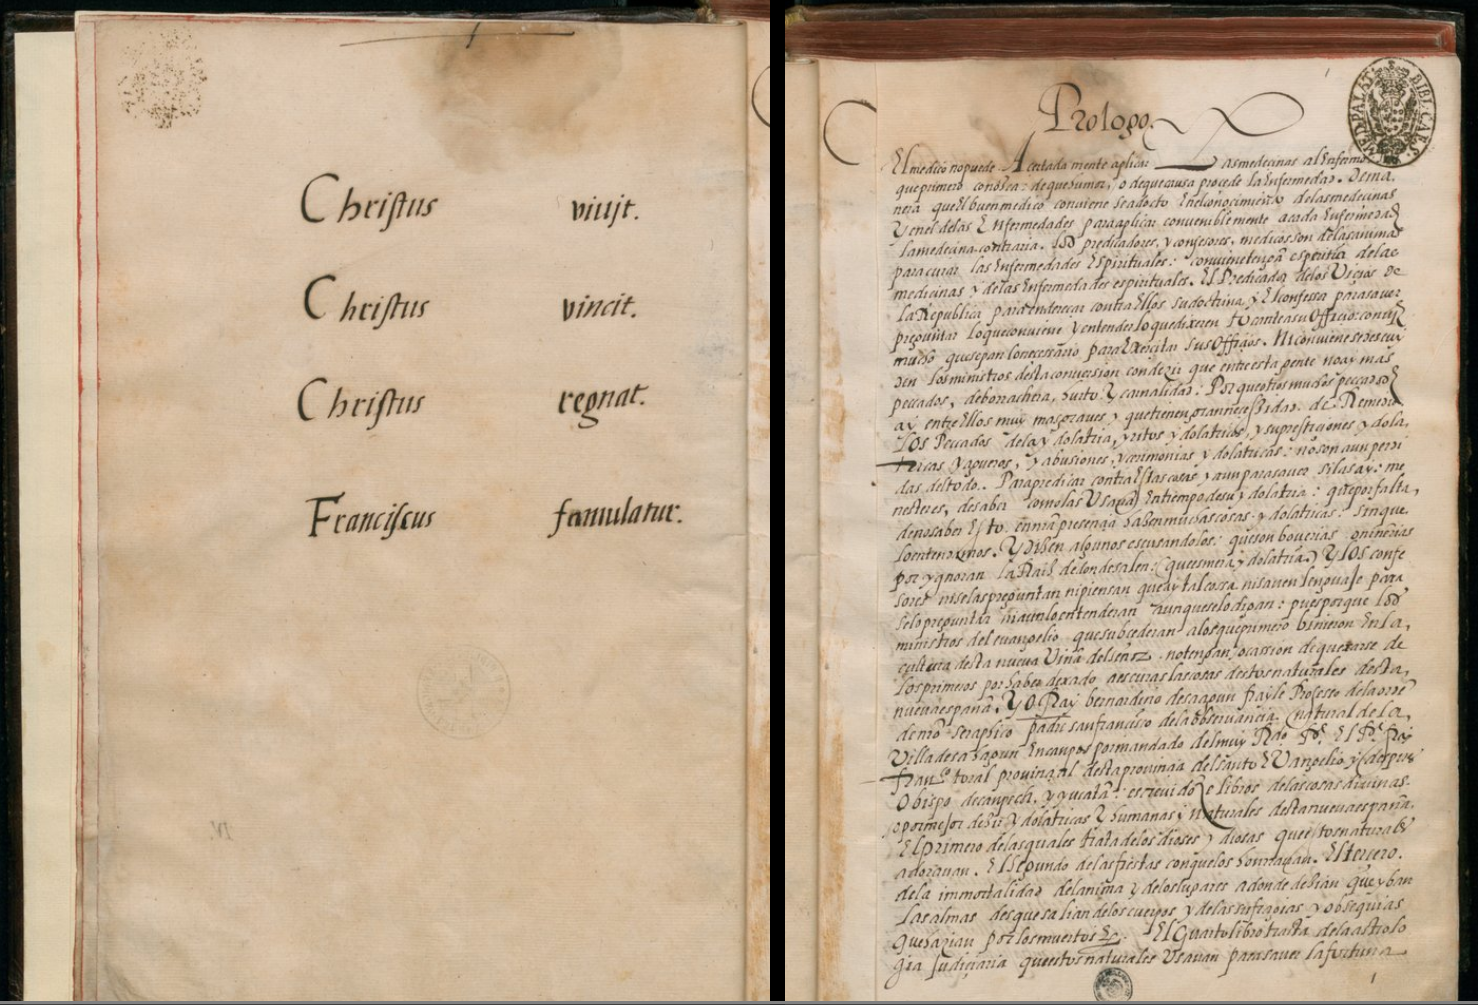 Christus viuit.
Christus vincit.
Christus regnat.
Franciscus famulatur.
Prologo.
El medico no puede Acertada mente aplicar Las medecinas al Enfermo
que primero conosca: de que humor, o de que causa procede la Enfermedad. Dema
nera que El buen medico conviene sea docto En el conocimiento de las medecinas
Y en el de las Enfermedades para aplicar conveniblemente acada Enfermedad
la medecina contraria. Los predicadores, y confesores, medicos son de las animas
para curar las Enfermedades Espirituales: conviene tengan esperitia de las
medicinas y de las Enfermedades espirituales. El Predicador de los Vicios de
la Republica para enderecar contra Ellos su doctrina y El confessor para saver
preguntar lo que conviene y entender lo que dixeren tocante a su Officio: conviene
mucho que sepan lo necessario para Exercitar sus Officios. Ni conviene se descui
den los ministros desta conversion con dezir que entre esta gente no ay mas
peccados, de borrachera, hurto y carnalidad: Porque otros muchos peccados
ay entre Ellos muy mas graves y que tienen gran necessidad de Remedio.
Los Peccados de la ydolatria, y ritos ydolatricos, y supresticiones ydola
tricas y agueros, y abusiones, y cerimonias ydolatricas: no son aun perdi
das del todo. Para predicar contra Estas cosas y aun para saver si las ay: me
nester es, de saber como las Usavan En tiempo de su ydolatria: que por falta,
de no saber Esto en nra presencia hazen muchas cosas ydolatricas: sin que
lo entendamos. Y dizen algunos escusandolos: que son boverias o niñerias
por ygnorar la Raiz de donde salen: (que es mera ydolatria.) Y los confe
sores ni se las preguntan ni piensan que ay tal cossa ni saven lenguaje para
se lo preguntar ni aun lo entenderan aunque se lo digan: pues porque los
ministros del evangelio que subcederan a los que primero binieron En la,
cultura desta nueva Viña del señor no tengan, ocassion de quexarse de
los primeros por haber dexado a escuras las cosas destos naturales desta,
nueva españa. Yo Fray bernardino de sagun frayle Professo de la orden
de nro seraphico padre san francisco de la observancia. (natural de la,
Villa de sahagun En canpos) por mandado del muy Rdo Pe. El Pe. fray
Franco toral provincial desta provincia del santo Evangelio y (despues
Obispo de canpech. y yucatan: escrevi doze libros de las cosas divinas.
o por mejor dezir ydolatricas y humanas y naturales desta nueva españa.
El primero de las quales trata de los dioses y diosas que estos naturales
adoravan. El Segundo de las fiestas con que los honravan. El tercero.
de la immortalidad del anima y de los lugares a donde dezian que yban
las almas desque salian de los cuerpos y de las sufragias y obsequias
que hazian por los muertos &c. El Quarto libro tracta de la astrolo
gia judiciaria que estos naturales Usavan para saver la fortuna
1